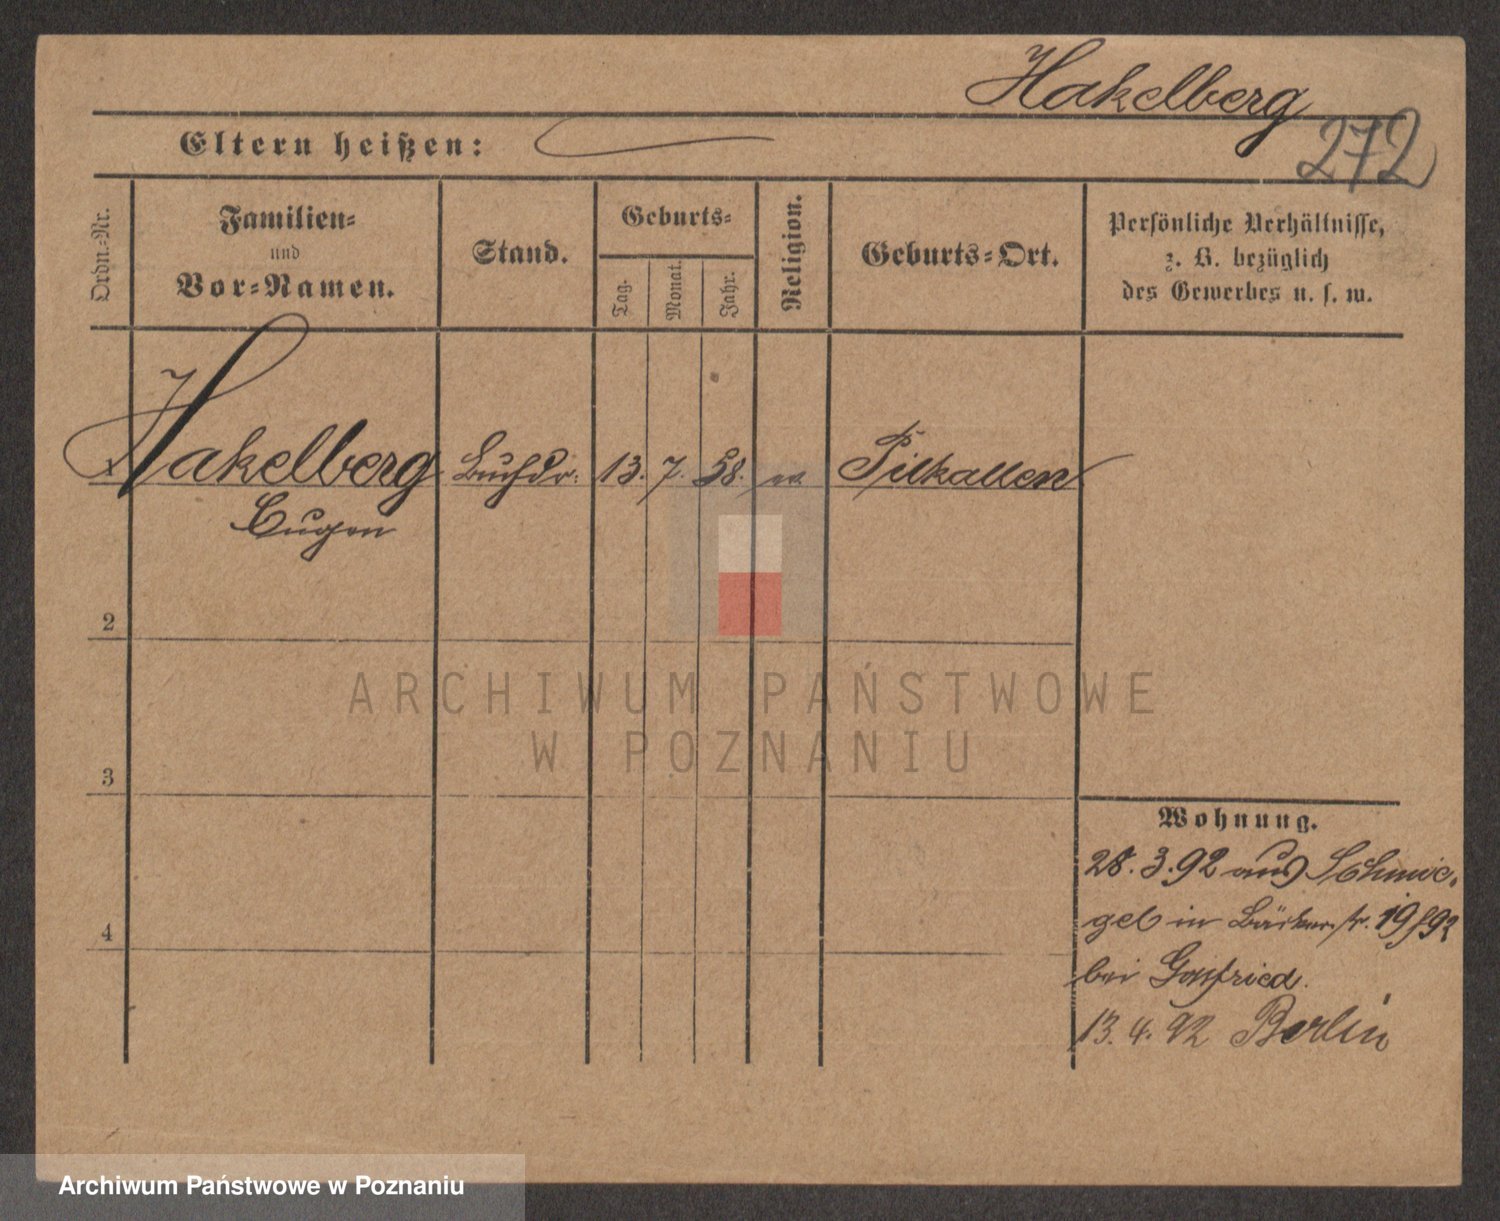 Hakelberg
272
Eltern heißen:
Ordn.=Nr.
Familien=
und
Vor=Namen.
Stand.
Geburts=
Tag.
Monat.
Jahr.
Religion.
Geburts=Ort.
Persönliche Verhältnisse,
z. B. bezüglich
des Gewerbes u. s. w.
1 Hakelberg Buchdr: 13. 7. 58. ev. Pilkallen
Eugen
2
3
4
ARCHIWUM PAŃSTWOWE
W POZNANIU
Wohnung.
28. 3. 92 aus Schmie-
gel in Bäckerstr. 19/92
bei
13. 4. 92 Berlin
Archiwum Państwowe w Poznaniu